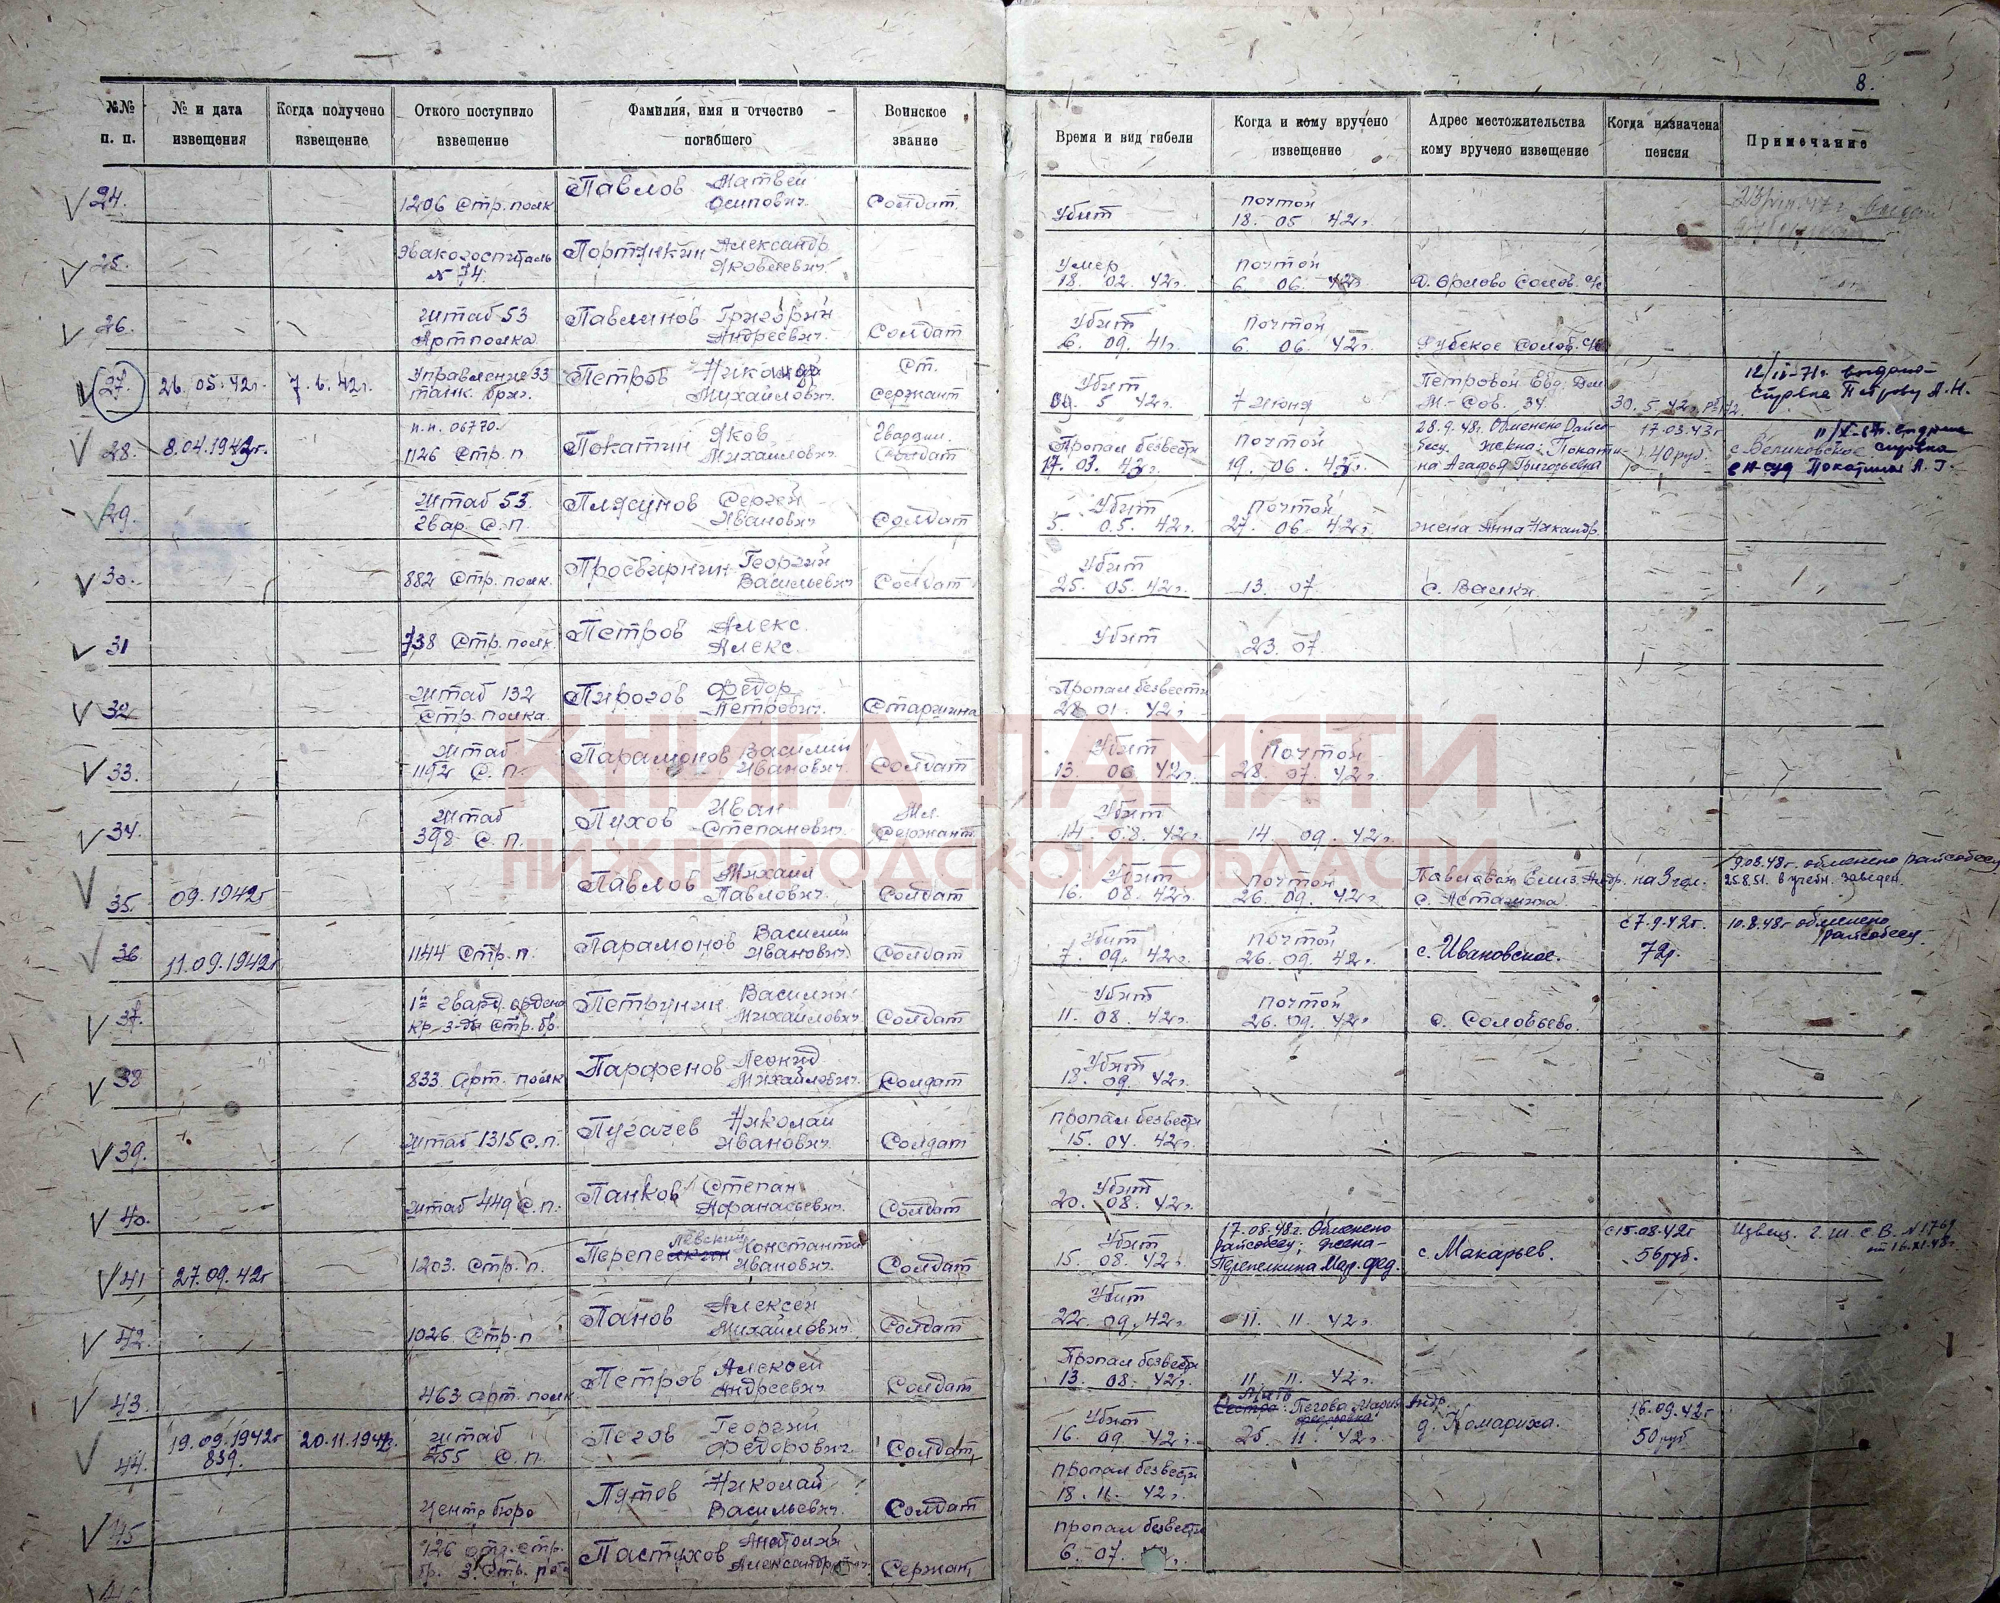 8.
№№ п. п. № и дата извещения Когда получено извещение Откого поступило извещение Фамилия, имя и отчество погибшего Воинское звание Время и вид гибели Когда и кому вручено извещение Адрес местожительства кому вручено извещение Когда назначена пенсия Примечание
24. 1206 Стр. полк Павлов Матвей Осипович Солдат. Убит почтой 18. 05 42г.
25. Эвакогоспиталь № 74. Портянкин Александр Яковлевич Умер 18. 02. 42г. почтой 6. 06. 42г. д. Орлово Солов. с/с
26. Штаб 53 Артполка Павлинов Григорий Андреевич Солдат Убит 6. 09. 41г. Почтой 6. 06. 42г.
27. 26. 05. 42г. 7. 6. 42г. Управление 33 танк. бриг. Петров Михайлович Ст. сержант Убит 09. 5 42г. 7 июня Петровой Евд. М.-Сов. 34 30. 5. 42г. 12/ -71г. выдана справка Петрову А. Н.
28. 8.04.1943г. п.п. 06770. 1126 Стр. п. Покатин Яков Михайлович Гвардии. Солдат Пропал безвести 17. 03. 43г. почтой 19. 06. 43г. 28.9.48г. Обменено Райсобесу. жена: Покатина Агафья Григорьевна 17.03.43г 40 руб. с. Великовское справка Покатиной А. Г.
29. Штаб 53. Гвар. С. П. Плясунов Сергей Иванович Солдат Убит 5. 05. 42г. Почтой 27. 06. 42г. жена Анна Никандр.
30. 882 Стр. полк. Просвирнин Георгий Васильевич Солдат Убит 25. 05. 42г. 13. 07. с. Валки.
31 738 Стр. полк Петров Алекс. Алекс. Убит 23. 07.
32 Штаб 132 Стр. полка. Пирогов Федор Петрович. Старшина Пропал безвести 28 01. 42г.
33. Штаб 1192 С. П. Парамонов Василий Иванович. Солдат Убит 13. 06 42г. Почтой 28. 07 42г.
КНИГА ПАМЯТИ
34. Штаб 398 С. П. Пухов Иван Степанович. Мл. Сержант. Убит 14. 08. 42г. 14. 09. 42г.
НИЖЕГОРОДСКОЙ ОБЛАСТИ
35. 09.1942г Павлов Михаил Павлович. Солдат Убит 16. 08. 42г. почтой 26. 09. 42г. Павлова Елиз. Андр. с. Асташиха. на 3 чел. 9.08.48г. обменено райсобесу 25.8.51. в учебн. заведен.
36 11.09.1942г 1144 Стр. п. Парамонов Василий Иванович. Солдат Убит 7. 09. 42г. почтой 26. 09. 42г. с. Ивановское. с 7.9.42г. 72р. 10.8.48г обменено райсобесу.
37. 1й гвард. ордена кр. з-ни Стр. бр. Петрунин Василий Михайлович Солдат Убит 11. 08. 42г. Почтой 26. 09. 42г. д. Соловьево.
38 833 Арт. полк Парфенов Леонид Михайлович. Солдат Убит 18. 09. 42г.
39. Штаб 1315 С. П. Пугачев Николай Иванович. Солдат пропал безвести 15. 04. 42г.
40. Штаб 449 С. П. Панков Степан Афанасьевич. Солдат Убит 20. 08. 42г.
41 27.09.42г 1203. Стр. п. Перепелкин Константин Иванович. Солдат Убит 15. 08. 42г. 17.08.48г. Обменено райсобесу; жена- Перепелкина Мар. Фед. с. Макарьев. с 15.08.42г 56 руб. Извещ. Г. Ш. С. В. № 1769 от 16.XI.48г.
42. 1026 Стр. п Панов Алексей Михайлович. Солдат Убит 22. 09. 42г. 11. 11. 42г.
43. 463 Арт. полк. Петров Алексей Андреевич. Солдат Пропал безвести 13. 08. 42г. 11. 11. 42г.
44. 19.09.1942г 839. 20.11.1942г. Штаб 255 С. П. Пегов Георгий Федорович. Солдат Убит 16. 09. 42г. Мать Сестра: Пегова Мария Андр. Федоровна 25 11. 42г. д. Комариха. 16.09.42г 50 руб
45 Центр бюро Пятов Николай Васильевич Солдат пропал безвести 18. 11. 42г.
46 126 отд. стр. бр. 3. Стр. рота Пастухов Анатолий Александрович. Сержант пропал безвести 6. 07.